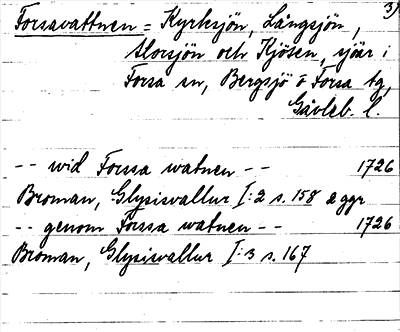 3)
Forsavattnen = Kyrksjön, Långsjön,
Storsjön och Kjösen, sjöar i
Forsa sn, Bergsjö o Forsa tg,
Gävleb. l.
-- wid Forssa watnen -- 1726
Broman, Glysisvallur I:2 s. 158 2 ggr
-- genom Forssa watnen -- 1726
Broman, Glysisvallur I:3 s. 167